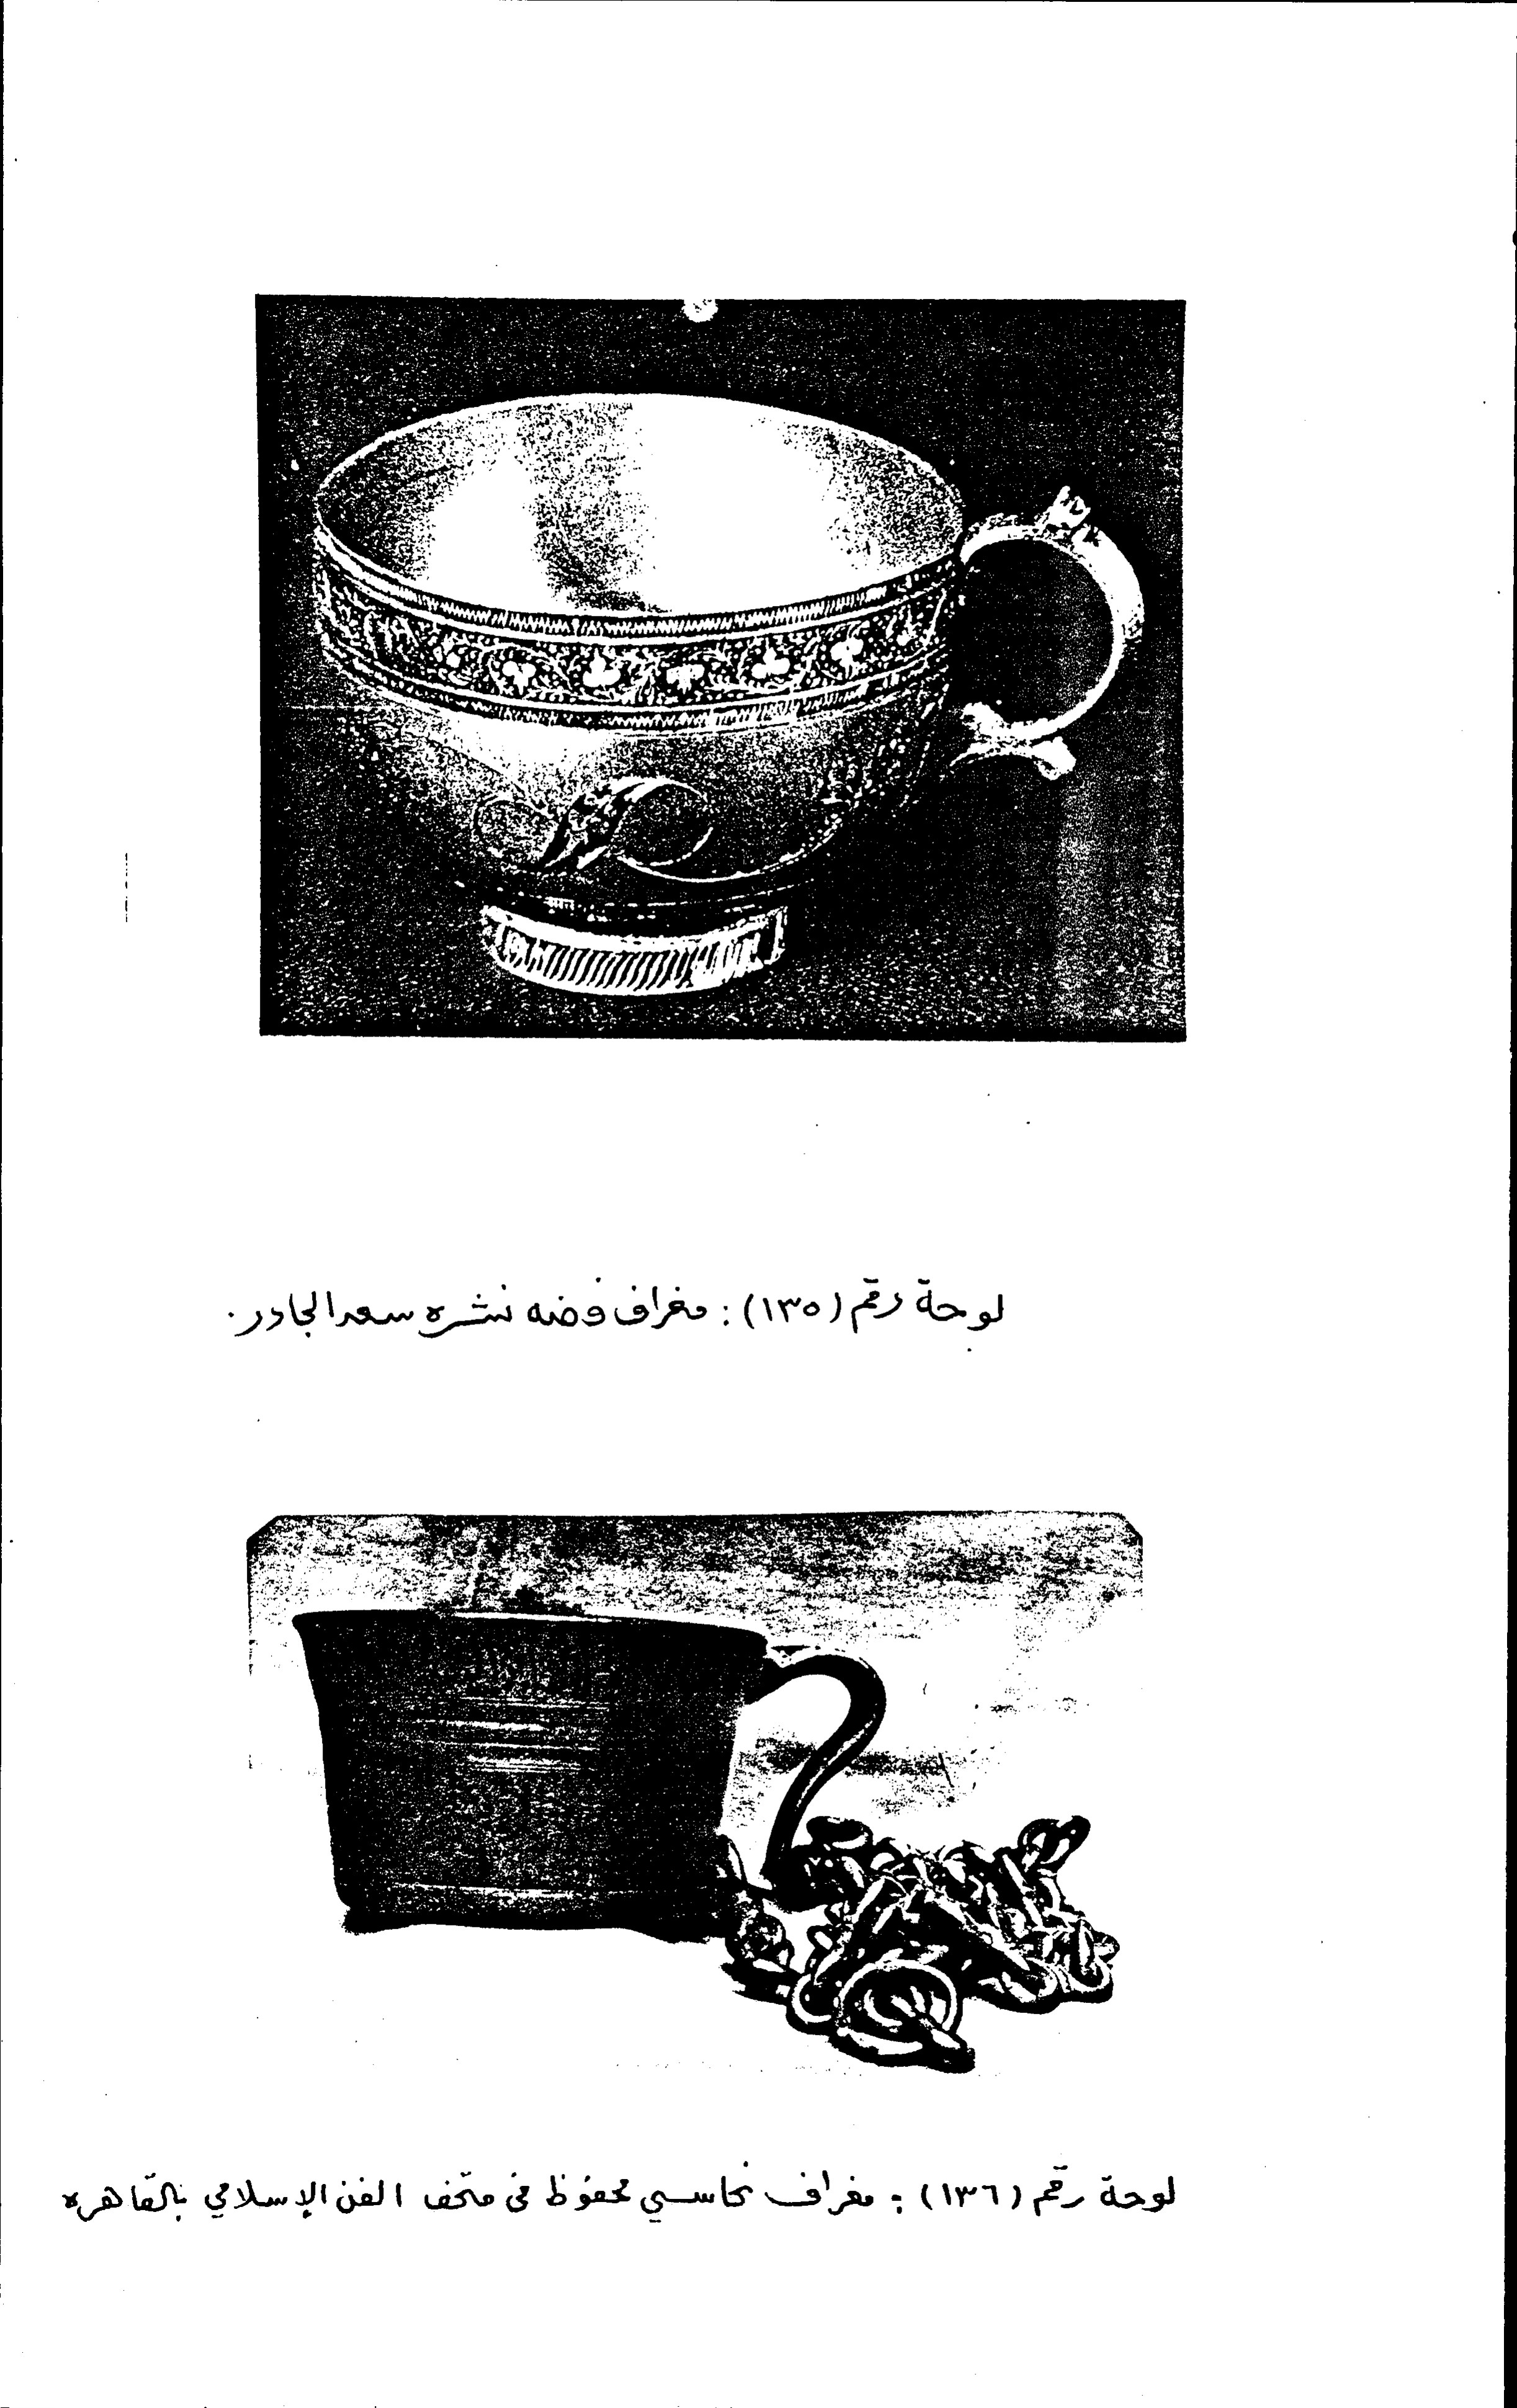 لوحة رقم (١٣٥) : مغراف فضه نشره سعد الجادر .
لوحة رقم (١٣٦) : مغراف نحاسي محفوظ في متحف الفن الإسلامي بالقاهره